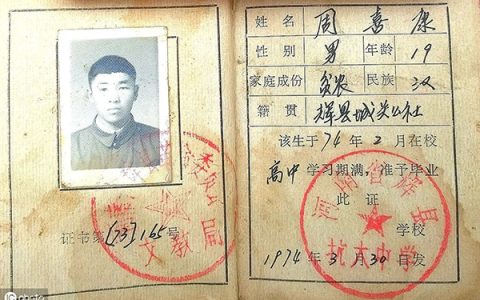 证书第(73)165号
文教局
姓名 周喜康
性别 男 年龄 19
家庭成份 贫农 民族 汉
籍贯 辉县城关公社
该生于74年2月在校
高中学习期满,准予毕业
此证
河南省辉县
学校
1974年3月30日发